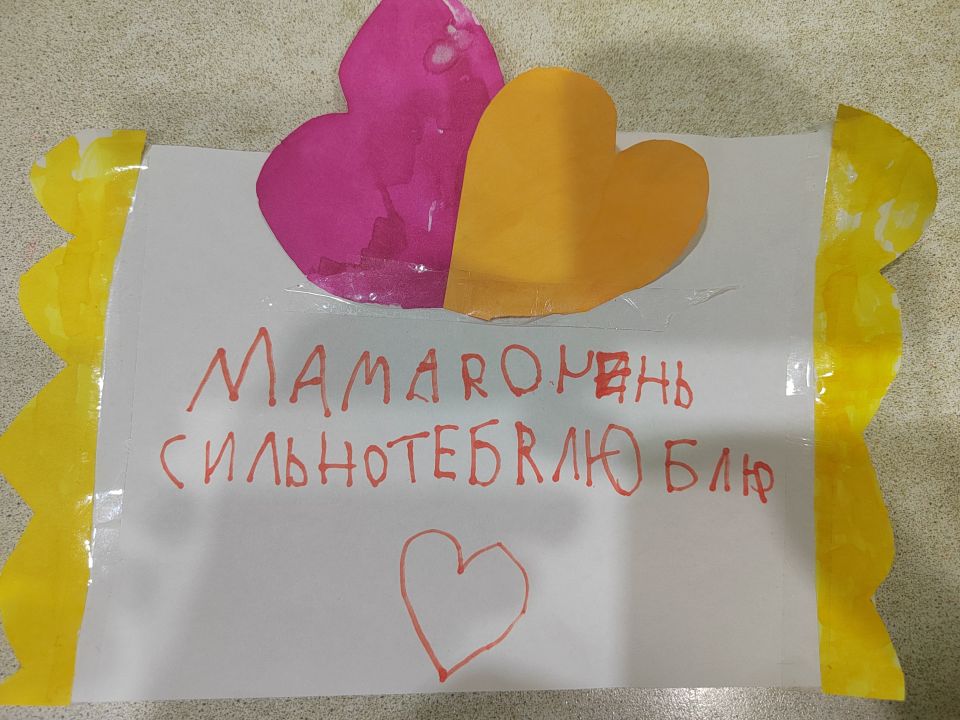 МАМАЯОЧЕНЬ
СИЛЬНОТЕБЯЛЮБЛЮ